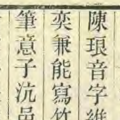 陳琅音字維
奕兼能寫竹
筆意子沆呂